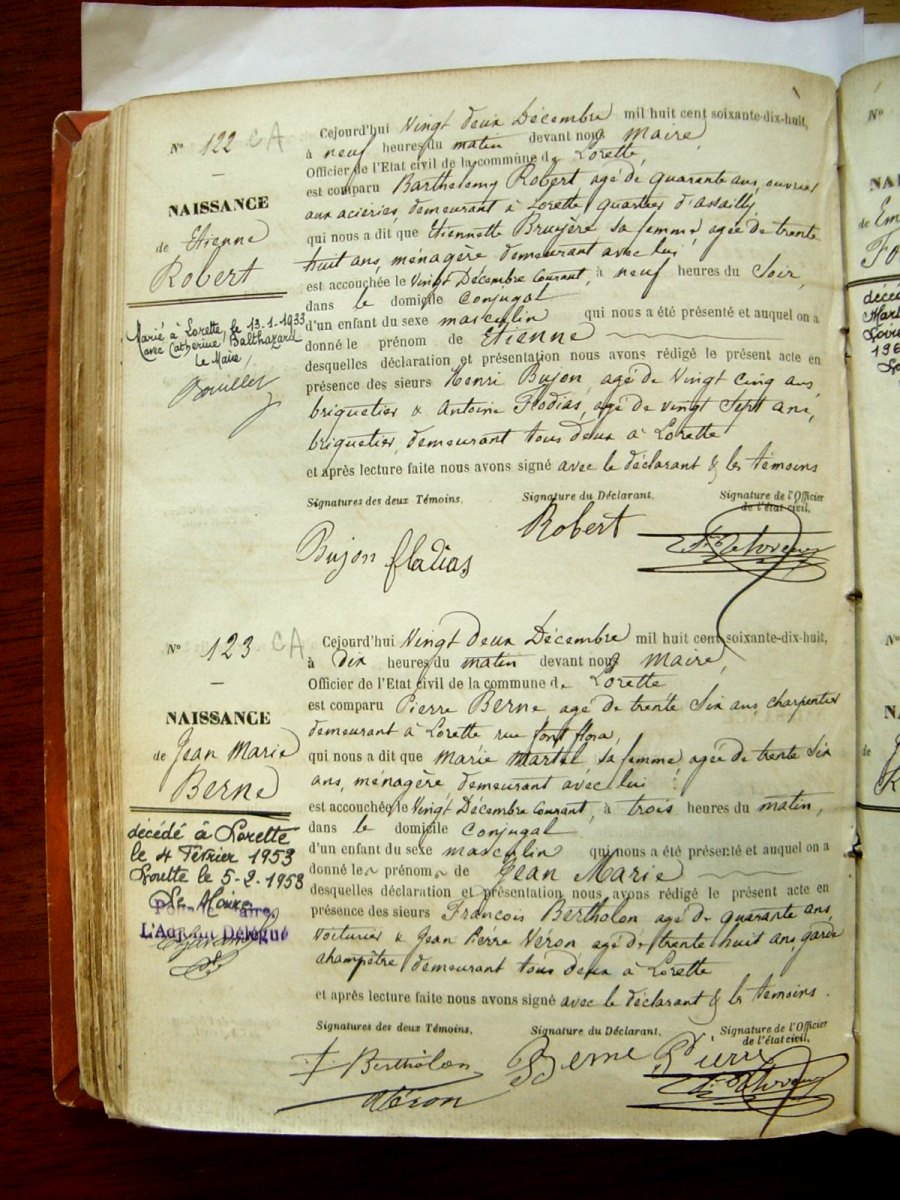 N° 122 CA
NAISSANCE
de Etienne
Robert
Marié à Lorette, le 13-1-1933
avec Catherine Balthazard
Le Maire,
Cejourd'hui Vingt deux Décembre mil huit cent soixante-dix-huit,
à neuf heures du matin devant nous Maire,
Officier de l'Etat civil de la commune de Lorette,
est comparu Barthelemy Robert agé de quarante ans, ouvrier
aux aciéries, demeurant à Lorette quartier d'assailly,
qui nous a dit que Etiennette Bruyère sa femme agée de trente
huit ans, ménagère demeurant avec lui
est accouchée le Vingt Décembre Courant, à neuf heures du Soir,
dans le domicile Conjugal
d'un enfant du sexe masculin qui nous a été présenté et auquel on a
donné le prénom de Etienne
desquelles déclaration et présentation nous avons rédigé le présent acte en
présence des sieurs Henri Bujon, agé de Vingt Cinq ans,
briquetier & Antoine Flodias, agé de vingt Sept ans,
briquetier, demeurant tous deux à Lorette
et après lecture faite nous avons signé avec le déclarant & les témoins
Signatures des deux Témoins, Signature du Déclarant, Signature de l'Officier
de l'état civil,
Bujon flodias Robert
N° 123 CA
NAISSANCE
de Jean Marie
Berne
décédé à Lorette
le 4 Février 1953
Lorette le 5-2-1953
Le Maire
L'Adjoint Délégué
Cejourd'hui Vingt deux Décembre mil huit cent soixante-dix-huit,
à dix heures du matin devant nous Maire,
Officier de l'Etat civil de la commune de Lorette
est comparu Pierre Berne agé de trente Six ans, charpentier
demeurant à Lorette rue font flora,
qui nous a dit que Marie Martel sa femme agée de trente Six
ans, ménagère, demeurant avec lui
est accouchée le Vingt Décembre Courant, à trois heures du matin,
dans le domicile Conjugal
d'un enfant du sexe masculin qui nous a été présenté et auquel on a
donné les prénoms de Jean Marie
desquelles déclaration et présentation nous avons rédigé le présent acte en
présence des sieurs Francois Bertholon agé de quarante ans
Voiturier & Jean Pierre Véron agé de trente huit ans, garde
champêtre demeurant tous deux à Lorette
et après lecture faite nous avons signé avec le déclarant & les temoins.
Signatures des deux Témoins, Signature du Déclarant, Signature de l'Officier
de l'état civil,
Bertholon Berne Pierre
Véron